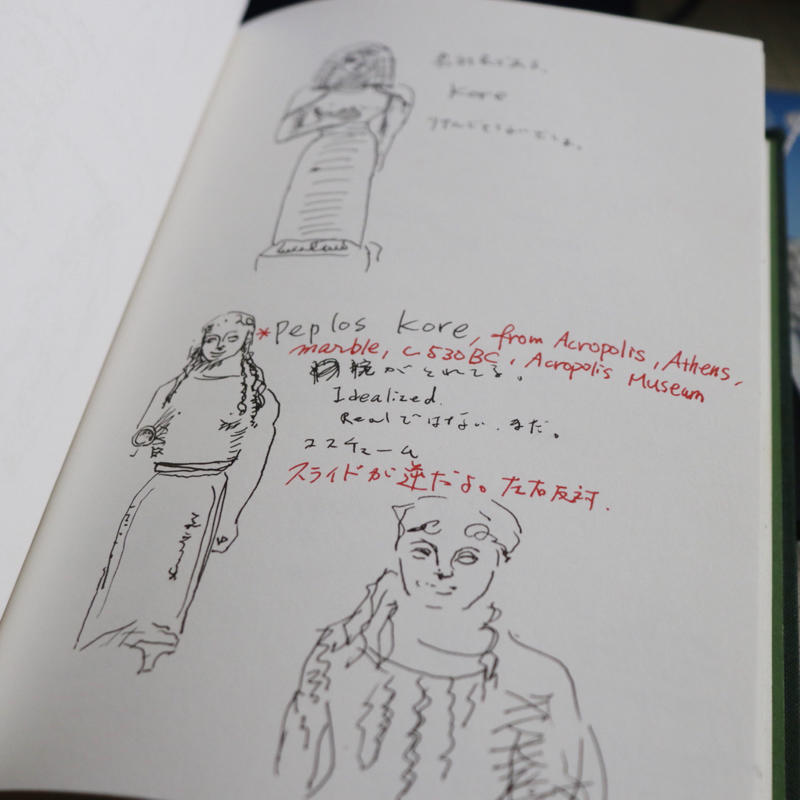 Kore
*Peplos Kore, from Acropolis, Athens,
marble, c. 530 BC, Acropolis Museum
腕がとれてる。
Idealized.
Realではない、まだ。
コスチューム
スライドが逆だよ。左右反対.